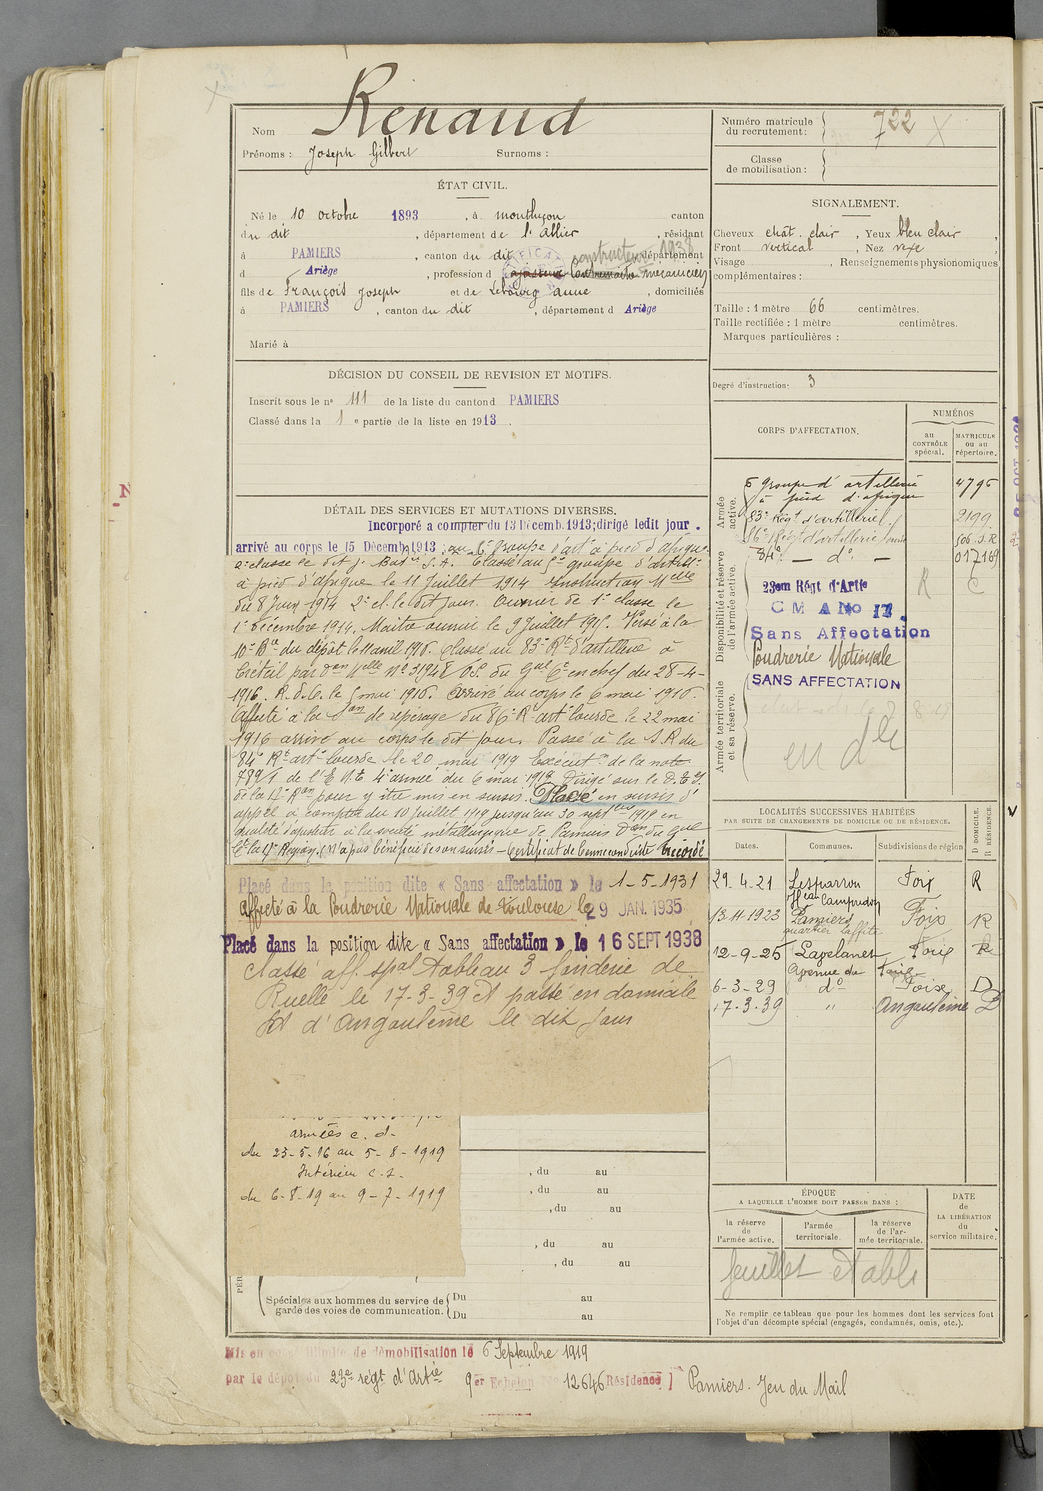 Nom Renaud
Prénoms : Joseph Gilbert Surnoms :
ÉTAT CIVIL.
Né le 10 octobre 1893, à montluçon canton
du dit, département de l'Allier, résidant
à PAMIERS, canton du dit département
constructeur 1938
d Ariège, profession d ajusteur Contremaître mecanicien
fils de François Joseph et de Lebourg anne, domiciliés
à PAMIERS, canton du dit, département d Ariège
Marié à
DÉCISION DU CONSEIL DE REVISION ET MOTIFS.
Inscrit sous le n° 111 de la liste du canton d PAMIERS
Classé dans la 1 e partie de la liste en 1913.
DÉTAIL DES SERVICES ET MUTATIONS DIVERSES.
Incorporé a compter du 13 Décemb. 1913; dirigé ledit jour.
arrivé au corps le 15 Décemb. 1913; au 6e Groupe d'art à pied d'afrique
2e classe le dit j. Classé au 6e groupe d'artillie
à pied d'afrique le 11 Juillet 1914 Instruction Mlle
du 8 Juin 1914 2e cl. le dit jour. Ouvrier de 1e classe le
1e Décembre 1914. Maitre ouvrier le 9 Juillet 1915. Versé à la
10e Bie du dépôt le avril 1916. Classé au 83e Rt d'artillerie à
du Gal Ct en chef du 28-4-
1916. R. d. C. le 5 mai 1916. Arrivé au corps le 6 mai 1916.
Affecté à la Son de repérage du 86e R. art lourde le 22 mai
1916 arrivé au corps le dit jour. Passé à la S.R du
84e Rt art lourde le 20 mai 1919 Exécution de la note
789/1 de l'E. M. 4e armée du 6 mai 1919 Dirigé sur le D.
de la 17e Ron pour y être mis en sursis. Placé en sursis d'
appel à compter du 10 juillet 1919 jusqu'au 30 septbre 1919 en
qualité d'ajusteur à la société métallurgique de Pamiers Don du Gal
Ct la 17e Région. (N'a pas bénéficié de son sursis - Certificat de bonne conduite accordé
Placé dans la position dite « Sans affectation » le 1-5-1931
Affecté à la Poudrerie Nationale de Toulouse le 29 JAN. 1935
Placé dans la position dite « Sans affectation » le 16 SEPT 1938
Classé aff. spal Tableau 3 fonderie de
Ruelle le 17-3-39 et passé en domicile
sd d'Angoulême le dit jour
armées c. d.
du 23-5-16 au 5-8-1919
Intérieur c. d.
du 6-8-19 au 9-7-1919
, du au
, du au
, du au
, du au
, du au
Spéciales aux hommes du service de garde des voies de communication.
Du au
Du au
Mis en congé illimité de démobilisation le 6 Septembre 1919
par le dépôt du 23e régt d'Artie 9er Echelon No 12646 Résidence Pamiers. Jeu du Mail
Numéro matricule du recrutement : 722
Classe de mobilisation :
SIGNALEMENT.
Cheveux chât. clair, Yeux bleu clair,
Front vertical, Nez vexe,
Visage, Renseignements physionomiques
complémentaires :
Taille : 1 mètre 66 centimètres.
Taille rectifiée : 1 mètre centimètres.
Marques particulières :
Degré d'instruction : 3
CORPS D'AFFECTATION.
NUMÉROS
au CONTRÔLE spécial.
MATRICULE ou au répertoire.
Armée active.
6 Groupe d'artillerie 4795
à pied d'afrique
83e Régt d'artillerie 2199
86e Régt d'artillerie lourde 506 S.R
Disponibilité et réserve de l'armée active.
84e — do — 017169
23em Régt d'Artie R C
C M A No 17.
Sans Affectation
Poudrerie Nationale
SANS AFFECTATION
Armée territoriale et sa réserve.
en dle
LOCALITÉS SUCCESSIVES HABITÉES
PAR SUITE DE CHANGEMENTS DE DOMICILE OU DE RÉSIDENCE.
Dates. Communes. Subdivisions de région D DOMICILE. R RÉSIDENCE.
29-4-21 Lesparrou Foix R
13-11-1923 Pamiers Foix R
quartier Laffite
12-9-25 Lavelanet Foix R
Avenue de Foix
6-3-29 do Foix D
17-3-39 " Angoulême D
ÉPOQUE
A LAQUELLE L'HOMME DOIT PASSER DANS :
la réserve de l'armée active.
l'armée territoriale.
la réserve de l'armée territoriale.
DATE de LA LIBÉRATION du service militaire.
feuillet établi
Ne remplir ce tableau que pour les hommes dont les services font
l'objet d'un décompte spécial (engagés, condamnés, omis, etc.).